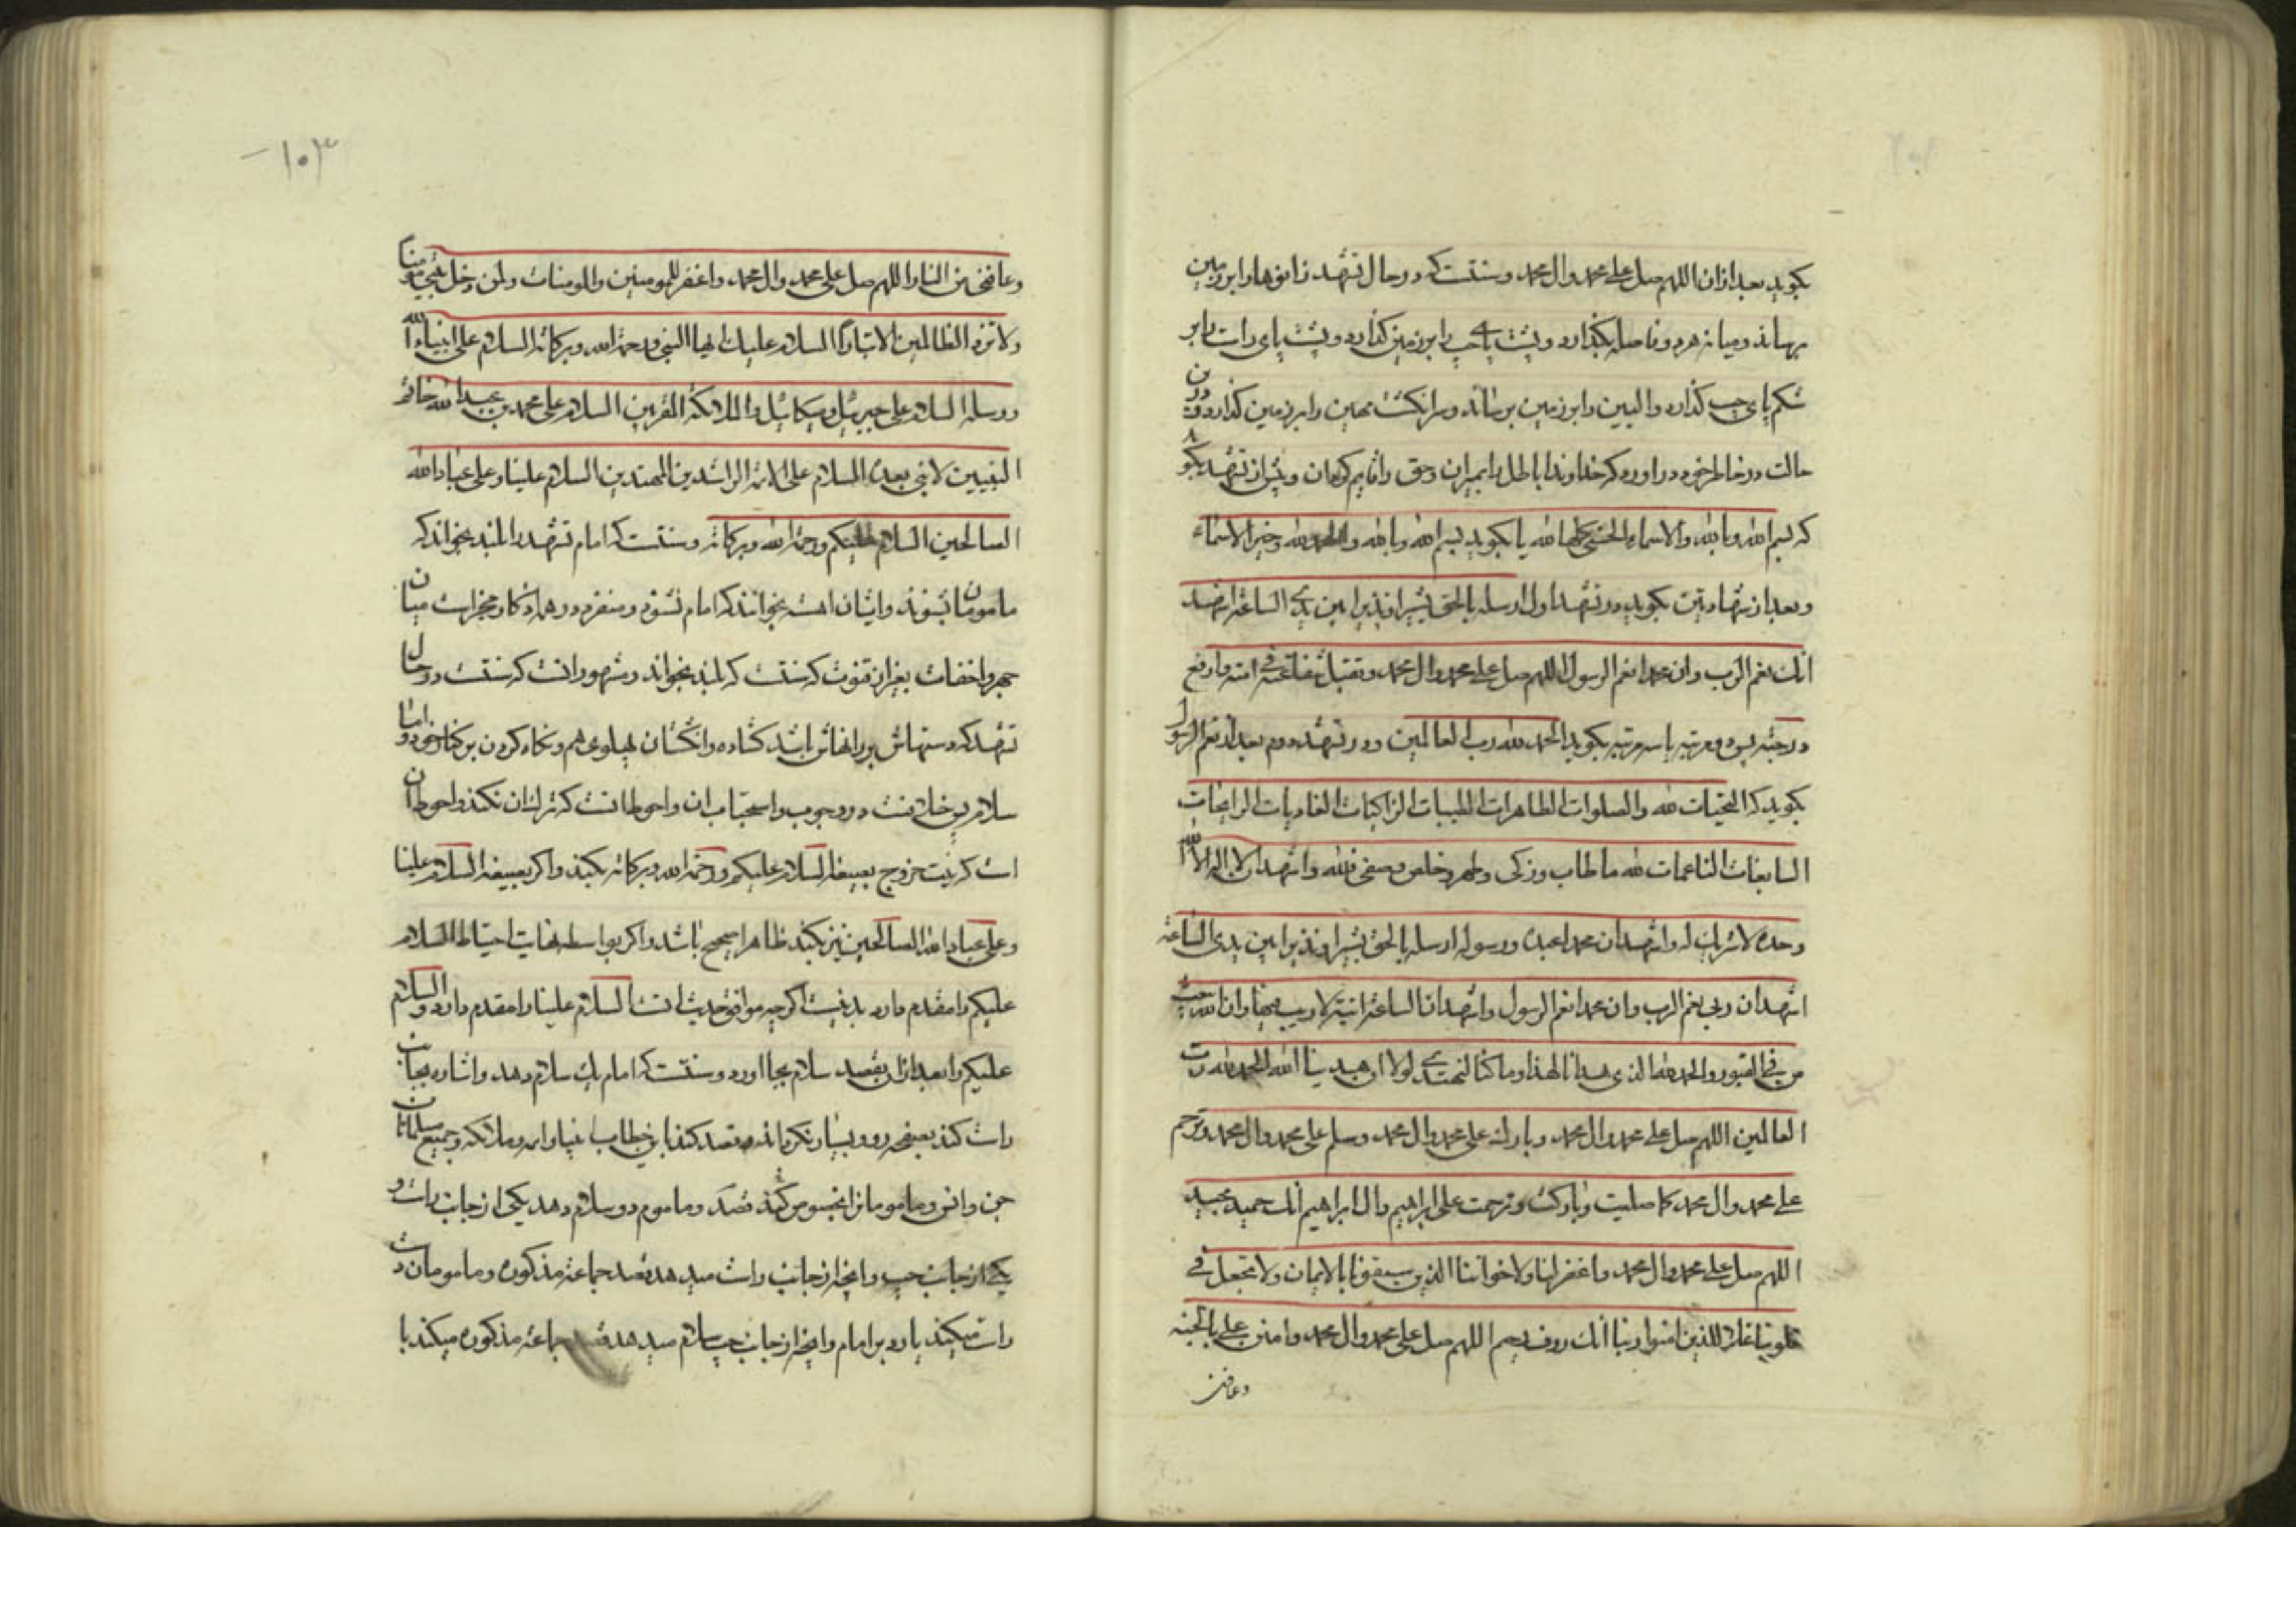 بکوید بعد ازان اللهم صل علی محمد وال محمد و سنتست که در حال تشهد زانوها را بر زمین
برساند و میانه هر دو فاصله بکذارد و پشت پای چپ را بر زمین کذارد و پشت پای راست را بر
شکم پای چپ کذارد و الیین را بر زمین برساند و سر انکشت مهین را بر زمین کذارد و درین
حالت در خاطر خود در اورد که خداوندا باطل را بمیران و حق را قایم کردان و پیش از تشهد بکو
که بسم الله و بالله والاسماء الحسنی کلها لله یا بکوید بسم الله و بالله والحمد لله و خیر الاسماء
و بعد از شهادتین بکوید در تشهد اول ارسله بالحق بشیرا و نذیرا بین یدی الساعة اشهد
انک نعم الرب وان محمدا نعم الرسول اللهم صل علی محمد وال محمد و تقبل شفاعته فی امته وارفع
درجته پس دو مرتبه یا سه مرتبه بکوید الحمد لله رب العالمین و در تشهد دوم بعد از نعم الرسول
بکوید که التحیات لله والصلوات الطاهرات الطیبات الزاکیات الغادیات الرایحات
السابغات الناعمات لله ما طاب وزکی وطهر وخلص وصفی فلله واشهد ان لا اله الا الله
وحده لا شریک له واشهد ان محمدا عبده ورسوله ارسله بالحق بشیرا و نذیرا بین یدی الساعة
اشهد ان ربی نعم الرب وان محمدا نعم الرسول واشهد ان الساعة اتیة لا ریب فیها وان الله یبعث
من فی القبور والحمد لله الذی هدانا لهذا وما کنا لنهتدی لولا ان هدینا الله الحمد لله رب
العالمین اللهم صل علی محمد وال محمد وبارک علی محمد وال محمد وسلم علی محمد وال محمد وترحم
علی محمد وال محمد کما صلیت وبارکت وترحمت علی ابراهیم وال ابراهیم انک حمید مجید
اللهم صل علی محمد وال محمد واغفر لنا ولاخواننا الذین سبقونا بالایمان ولا تجعل فی
قلوبنا غلا للذین امنوا ربنا انک روف رحیم اللهم صل علی محمد وال محمد وامنن علی بالجنة
وعافنی
۱۰۳
وعافنی من النار اللهم صل علی محمد وال محمد واغفر للمومنین والمومنات ولمن دخل بیتی مومنا
ولا تزد الظالمین الا تبارا السلام علیک ایها النبی ورحمة الله وبرکاته السلام علی انبیاء الله
ورسله السلام علی جبرئیل ومیکائیل والملائکة المقربین السلام علی محمد بن عبد الله خاتم
النبیین لا نبی بعده السلام علی الائمة الراشدین المهتدین السلام علینا وعلی عباد الله
الصالحین السلام علیکم ورحمة الله وبرکاته و سنتست که امام تشهد را بلند بخواند که
مامومان بشنوند و ایشان اهسته بخوانند که امام نشنود و منفرد در همه اذکار مخیر است میان
جهر و اخفات بغیر از قنوت که سنتست که بلند بخواند و مشهور انست که سنتست در حال
تشهد که دستهاش بر رانهاش باشد کشاده و انکشتان پهلوی هم و نکاه کردن بر کنار خود و اما
سلام پس خلافست در وجوب و استحباب ان و احوط انست که ترک ان نکند و احوط ان
است که نیت خروج بصیغه السلام علیکم ورحمة الله وبرکاته بکند و اکر بصیغه السلام علینا
وعلی عباد الله الصالحین نیز بکند ظاهرا صحیح باشد و اکر بواسطه نهایت احتیاط السلام
علیکم را مقدم دارد بد نیست اکر چه موافق حدیث انست السلام علینا را مقدم دارد و السلام
علیکم را بعد ازان بقصد سلام بجا اورد و سنتست که امام یک سلام دهد و اشاره بجانب
راست کند بصفحه رو و بیسار نکرداند و قصد کند باین خطاب انبیا و ایمه و ملائکه و جمیع مسلمانان
جن و انس و مامومانرا بخصوص کند قصد و ماموم دو سلام دهد یکی از جانب راست و
یکی از جانب چپ و انچه از جانب راست میدهد قصد جماعة مذکوره و مامومان دست
راست میکند یا رد بر امام و انچه از جانب چپ سلام میدهد قصد جماعة مذکوره میکند با